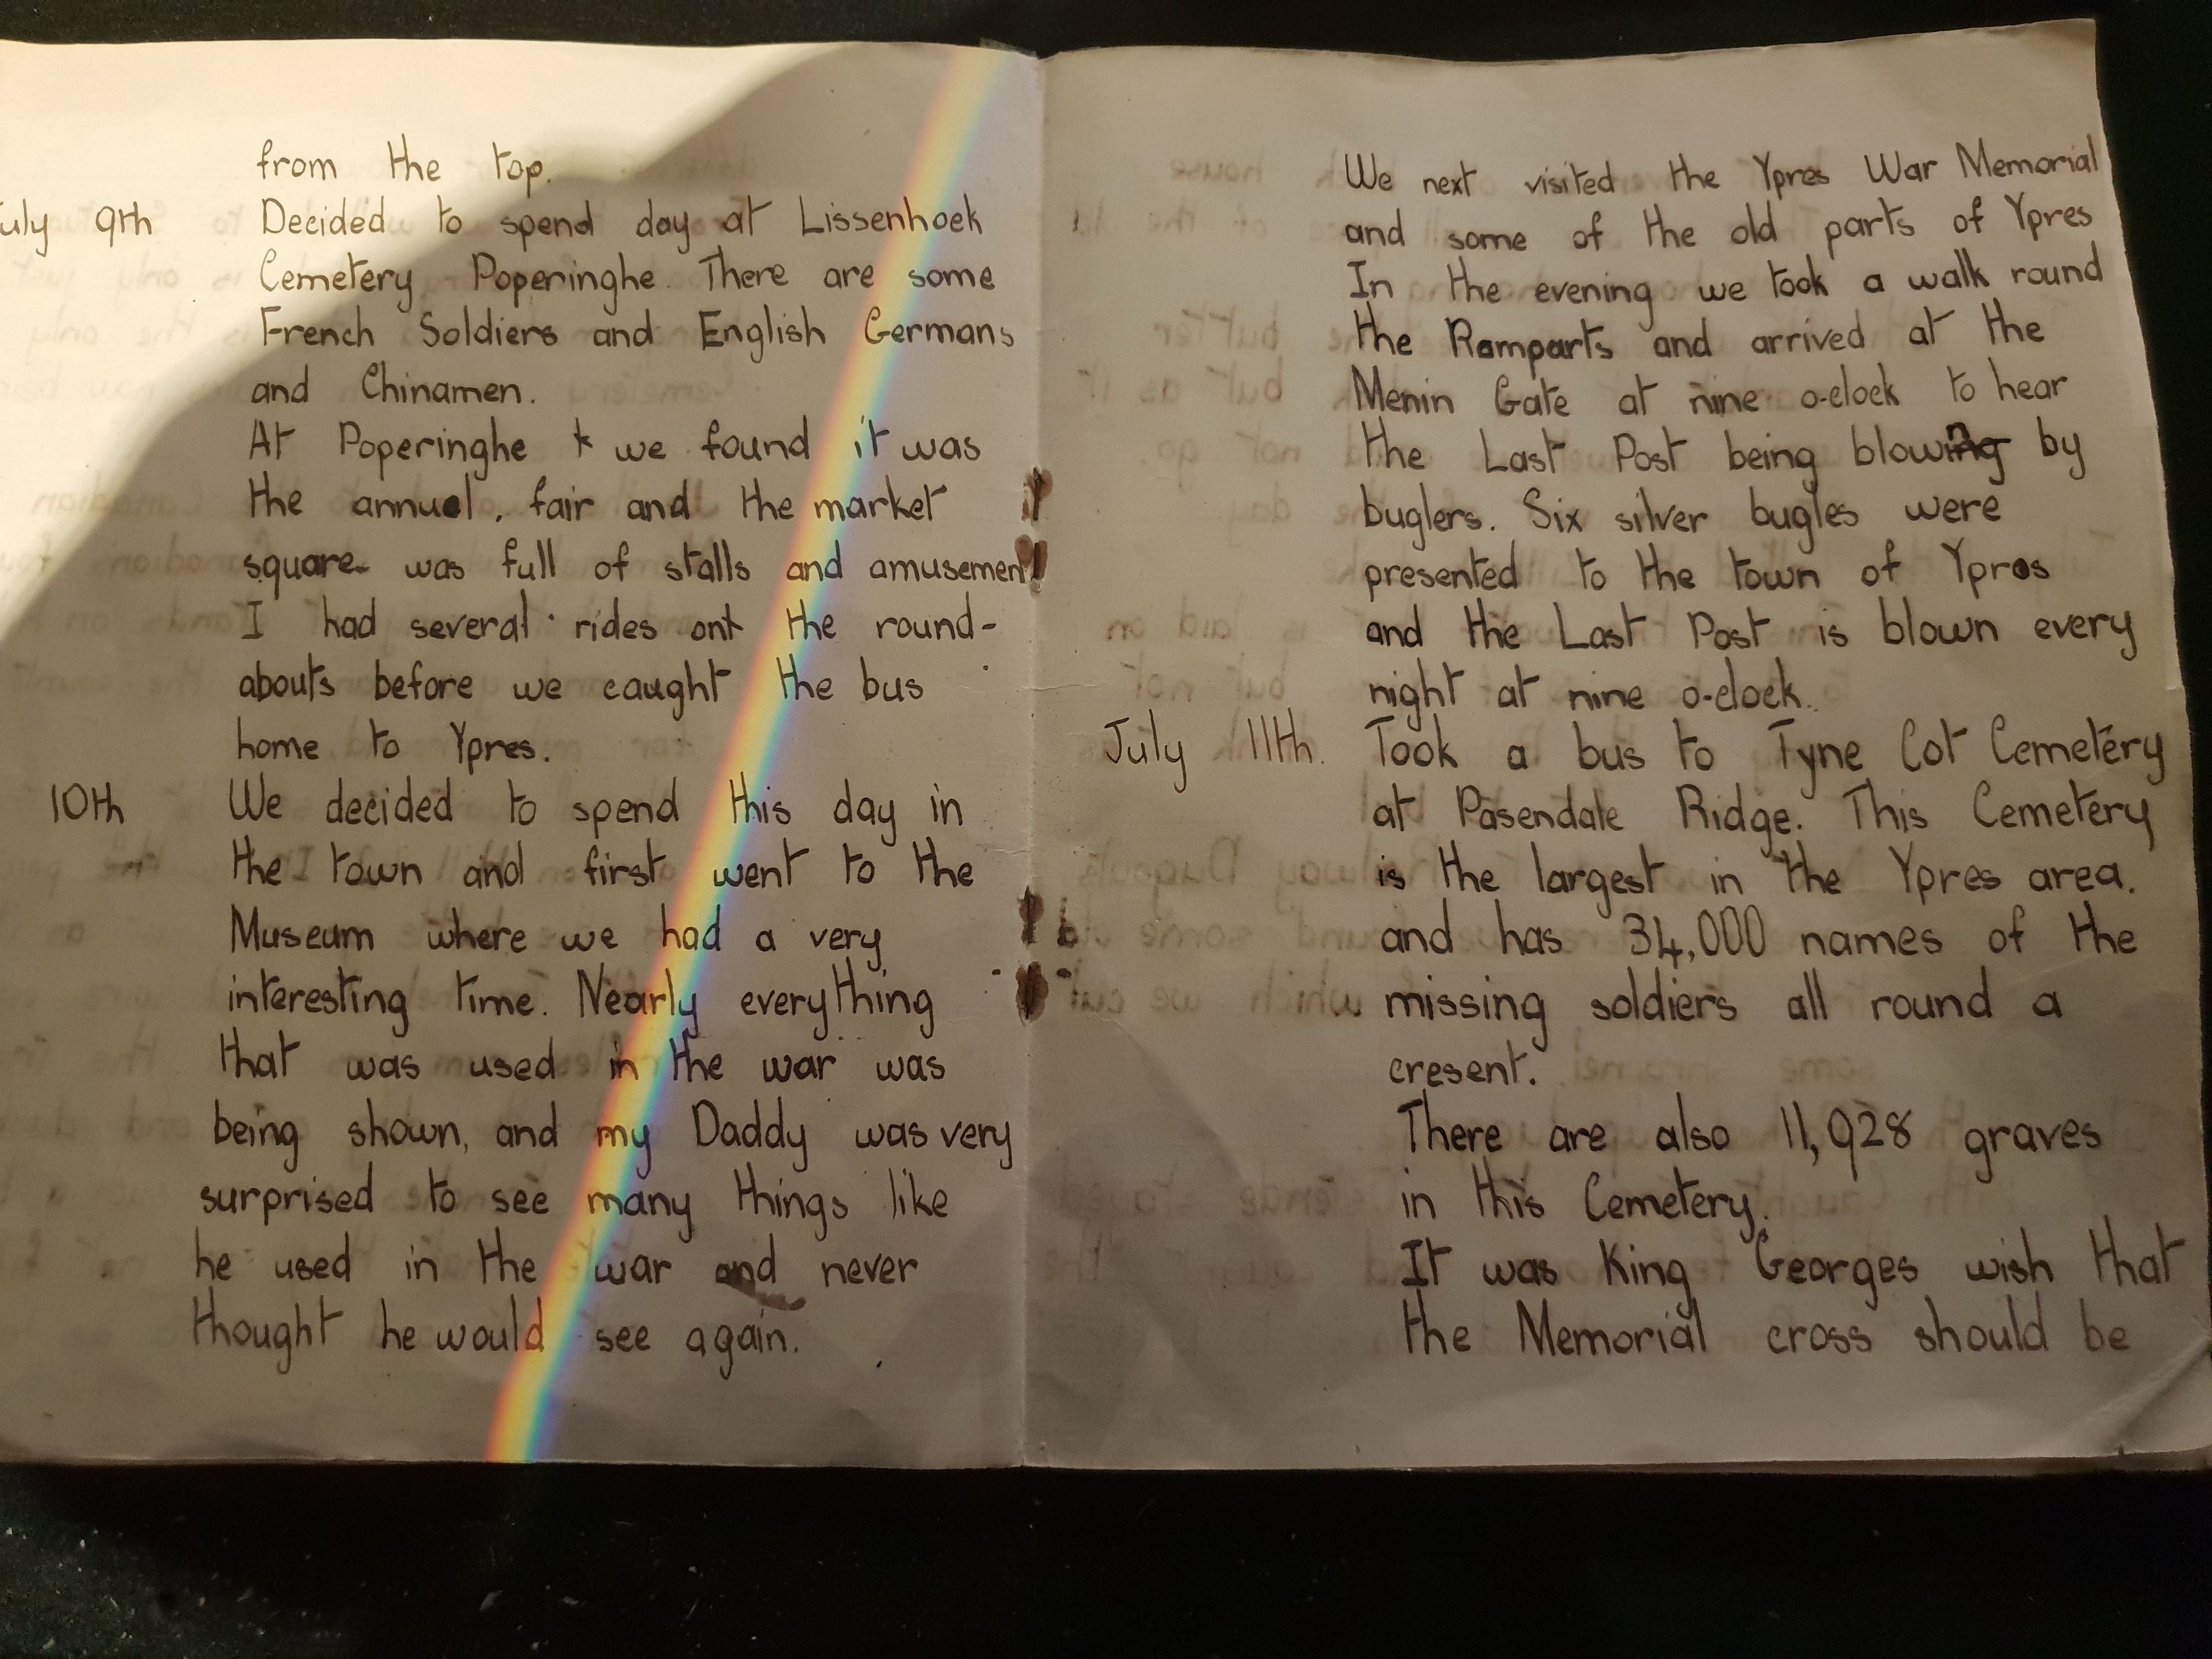 from the top.
uly 9th Decided to spend day at Lissenhoek
Cemetery Poperinghe. There are some
French Soldiers and English Germans
and Chinamen.
At Poperinghe we found it was
the annual, fair and the market
square was full of stalls and amusement
I had several rides ont the round-
abouts before we caught the bus
home to Ypres.
10th We decided to spend this day in
the town and first went to the
Museum where we had a very
interesting time. Nearly everything
that was used in the war was
being shown, and my Daddy was very
surprised to see many things like
he used in the war and never
thought he would see again.
We next visited the Ypres War Memorial
and some of the old parts of Ypres
In the evening we took a walk round
the Ramparts and arrived at the
Menin Gate at nine o-clock to hear
the Last Post being blown by
buglers. Six silver bugles were
presented to the town of Ypres
and the Last Post is blown every
night at nine o-clock.
July 11th. Took a bus to Tyne Cot Cemetery
at Pasendale Ridge. This Cemetery
is the largest in the Ypres area.
and has 34,000 names of the
missing soldiers all round a
cresent.
There are also 11,928 graves
in this Cemetery.
It was King Georges wish that
the Memorial cross should be